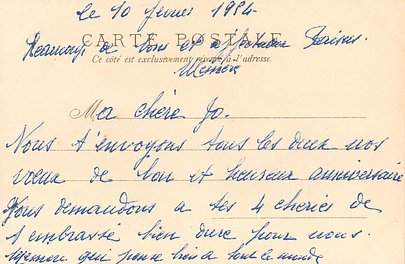 le 10 février 1984
CARTE POSTALE
Beaucoup de bons et affectueux Baisers.
Ce côté est exclusivement réservé à l'adresse.
Ma chère Jo.
Nous t'envoyons tous les deux nos
vœux de bon et heureux anniversaire
Nous demandons a tes 4 cheries de
t'embrassé bien dure pour nous.
qui pense bien à tout le monde